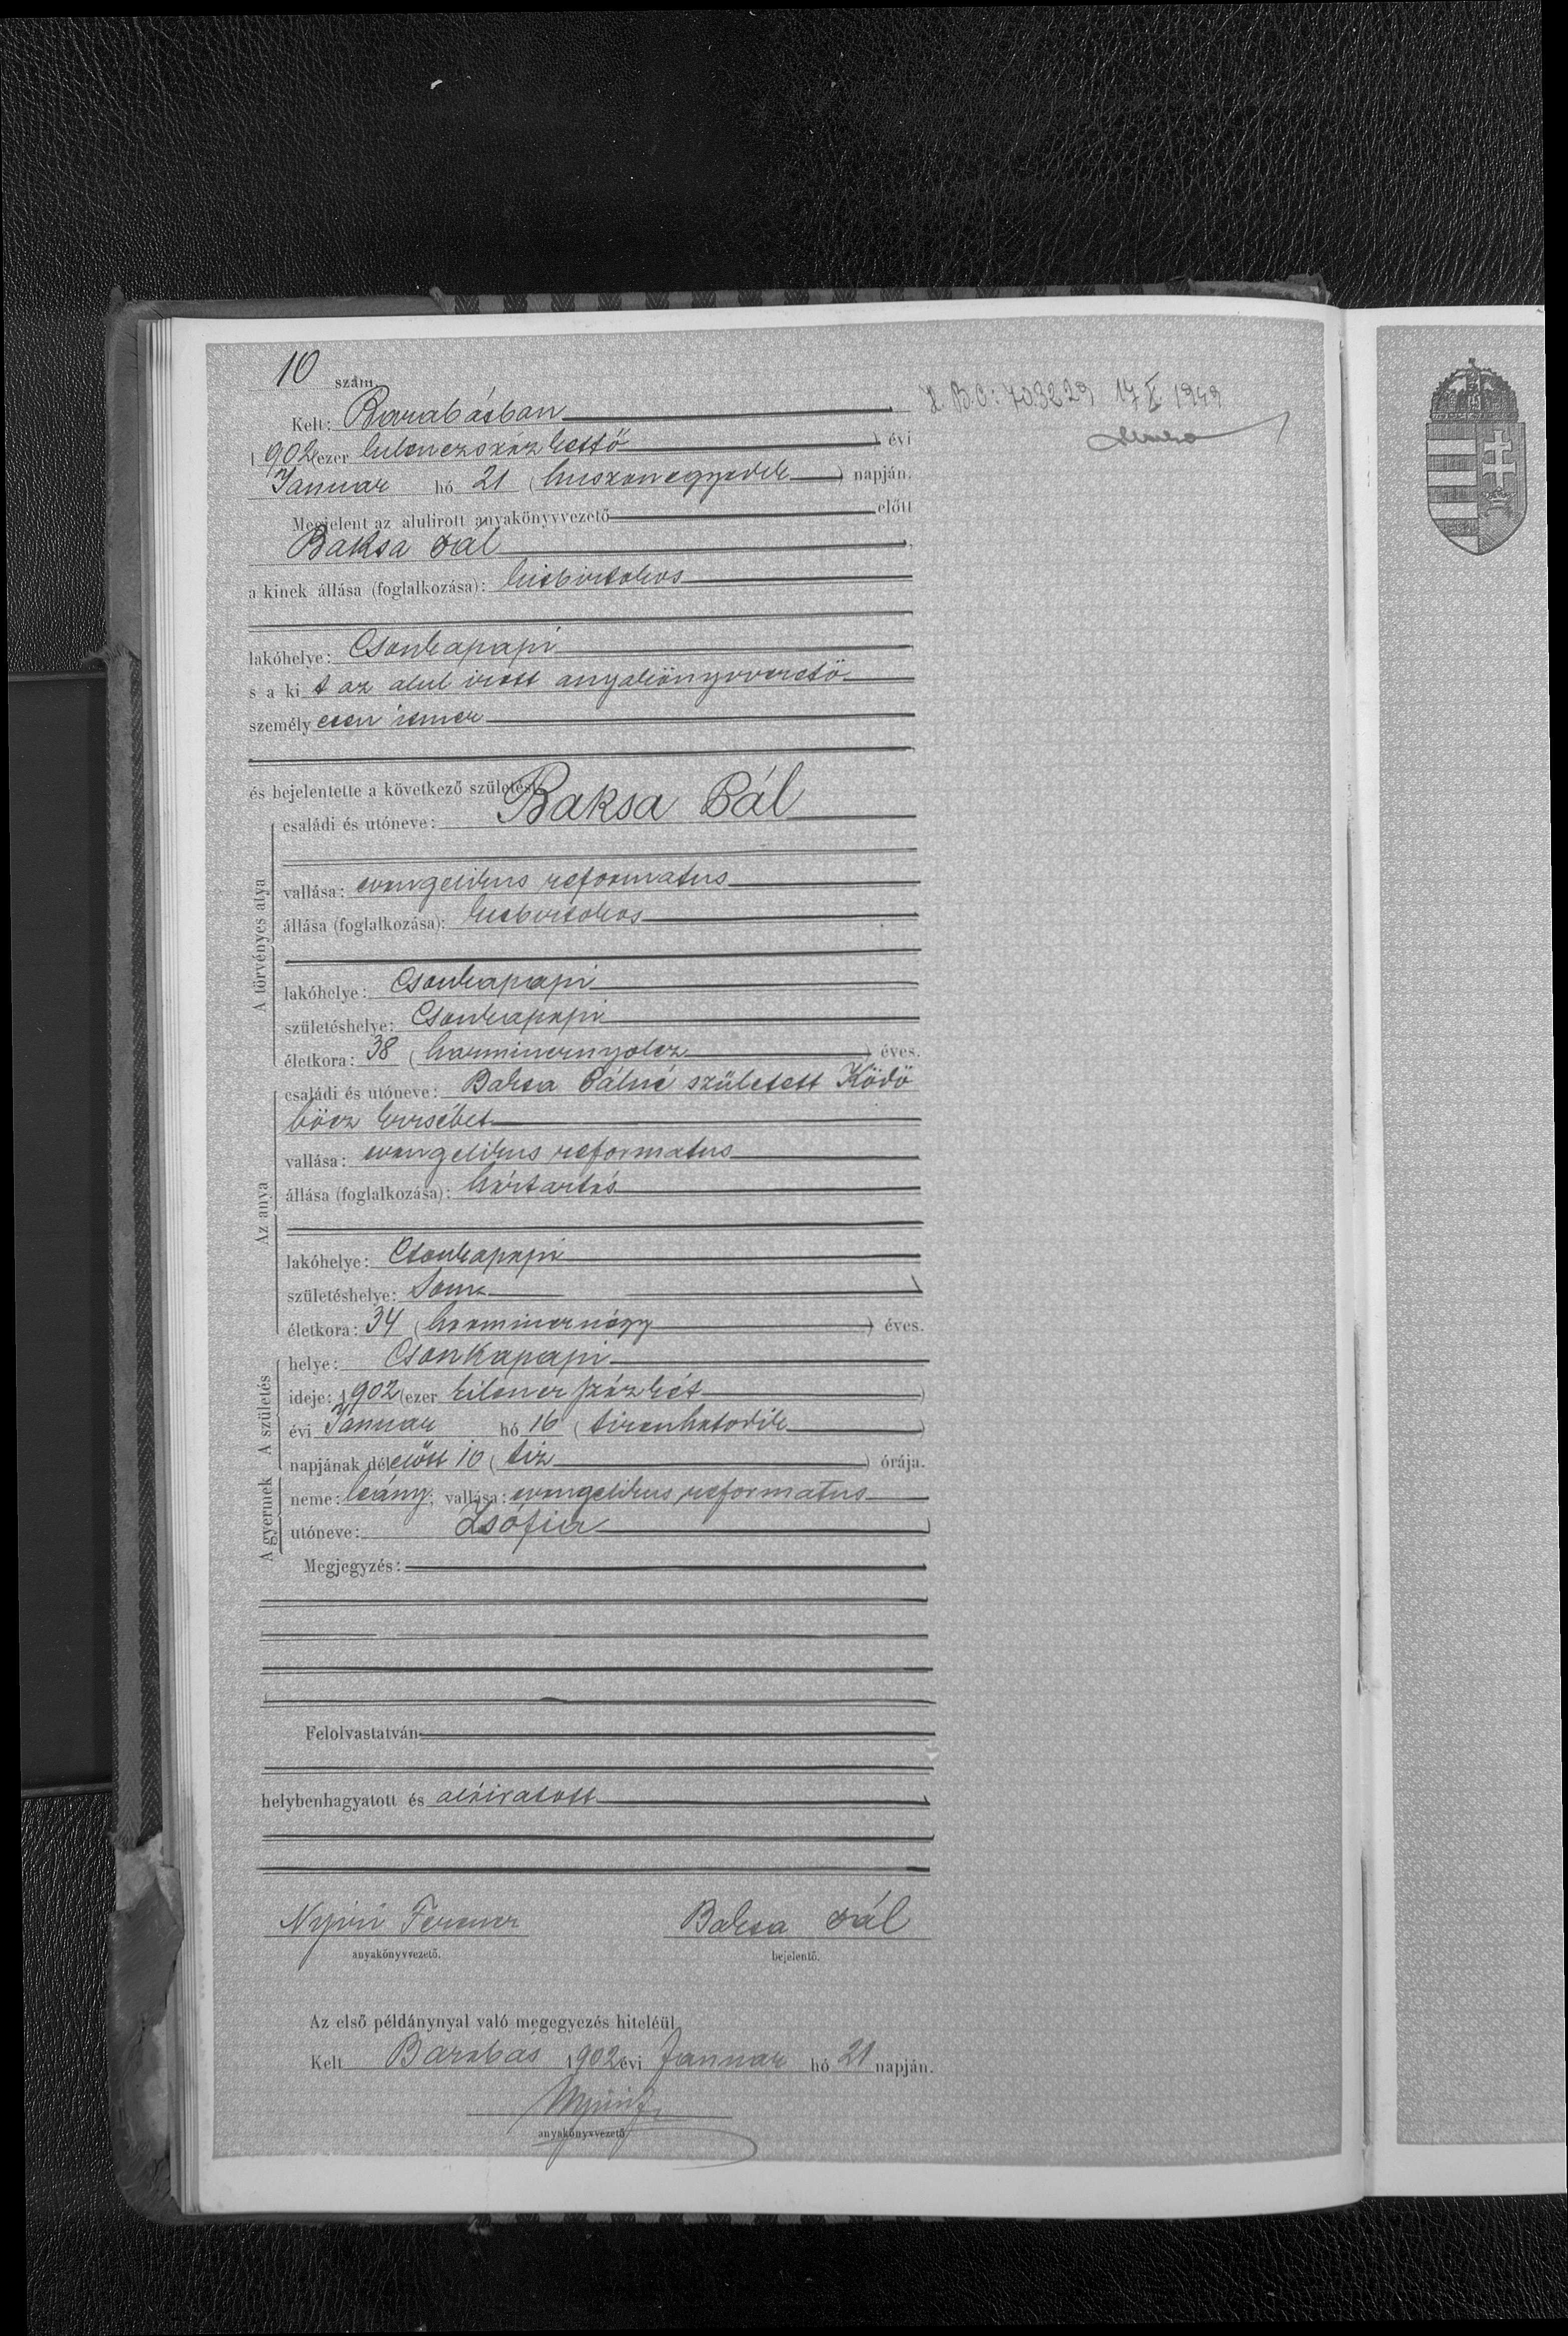 10 szám.
Kelt: Barabásban
1902 (ezer kilenczszázkettő) évi
Januar hó 21 (huszonegyedik) napján.
Megjelent az alulirott anyakönyvvezető előtt
Baksa Pál
a kinek állása (foglalkozása): kisbirtokos
lakóhelye: Csonkapapi
s a kit az alul irott anyakönyvvezető
személyesen ismer
és bejelentette a következő születést
A törvényes atya
családi és utóneve: Baksa Pál
vallása: evangelikus reformatus
állása (foglalkozása): kisbirtokos
lakóhelye: Csonkapapi
születéshelye: Csonkapapi
életkora: 38 (harmincznyolcz) éves.
Az anya
családi és utóneve: Baksa Pálné született Ködö
böcz Erzsébet
vallása: evangelikus reformatus
állása (foglalkozása): háztartás
lakóhelye: Csonkapapi
születéshelye: Som
életkora: 34 (harmincznégy) éves.
A születés
helye: Csonkapapi
ideje: 1902 (ezer kilenczszázkét)
évi Januar hó 16 (tizenhatodik)
napjának délelőtt 10 (tiz) órája.
A gyermek
neme: leány; vallása: evangelikus reformatus
utóneve: Zsófia
Megjegyzés:
Felolvastatván
helybenhagyatott és aláiratott
Nyiri Ferencz Baksa Pál
anyakönyvvezető. bejelentő.
Az első példánynyal való megegyezés hiteléül
Kelt Barabás 1902 évi Januar hó 21 napján.
Nyiri F.
anyakönyvvezető
B.C: 703229 17 X 1949